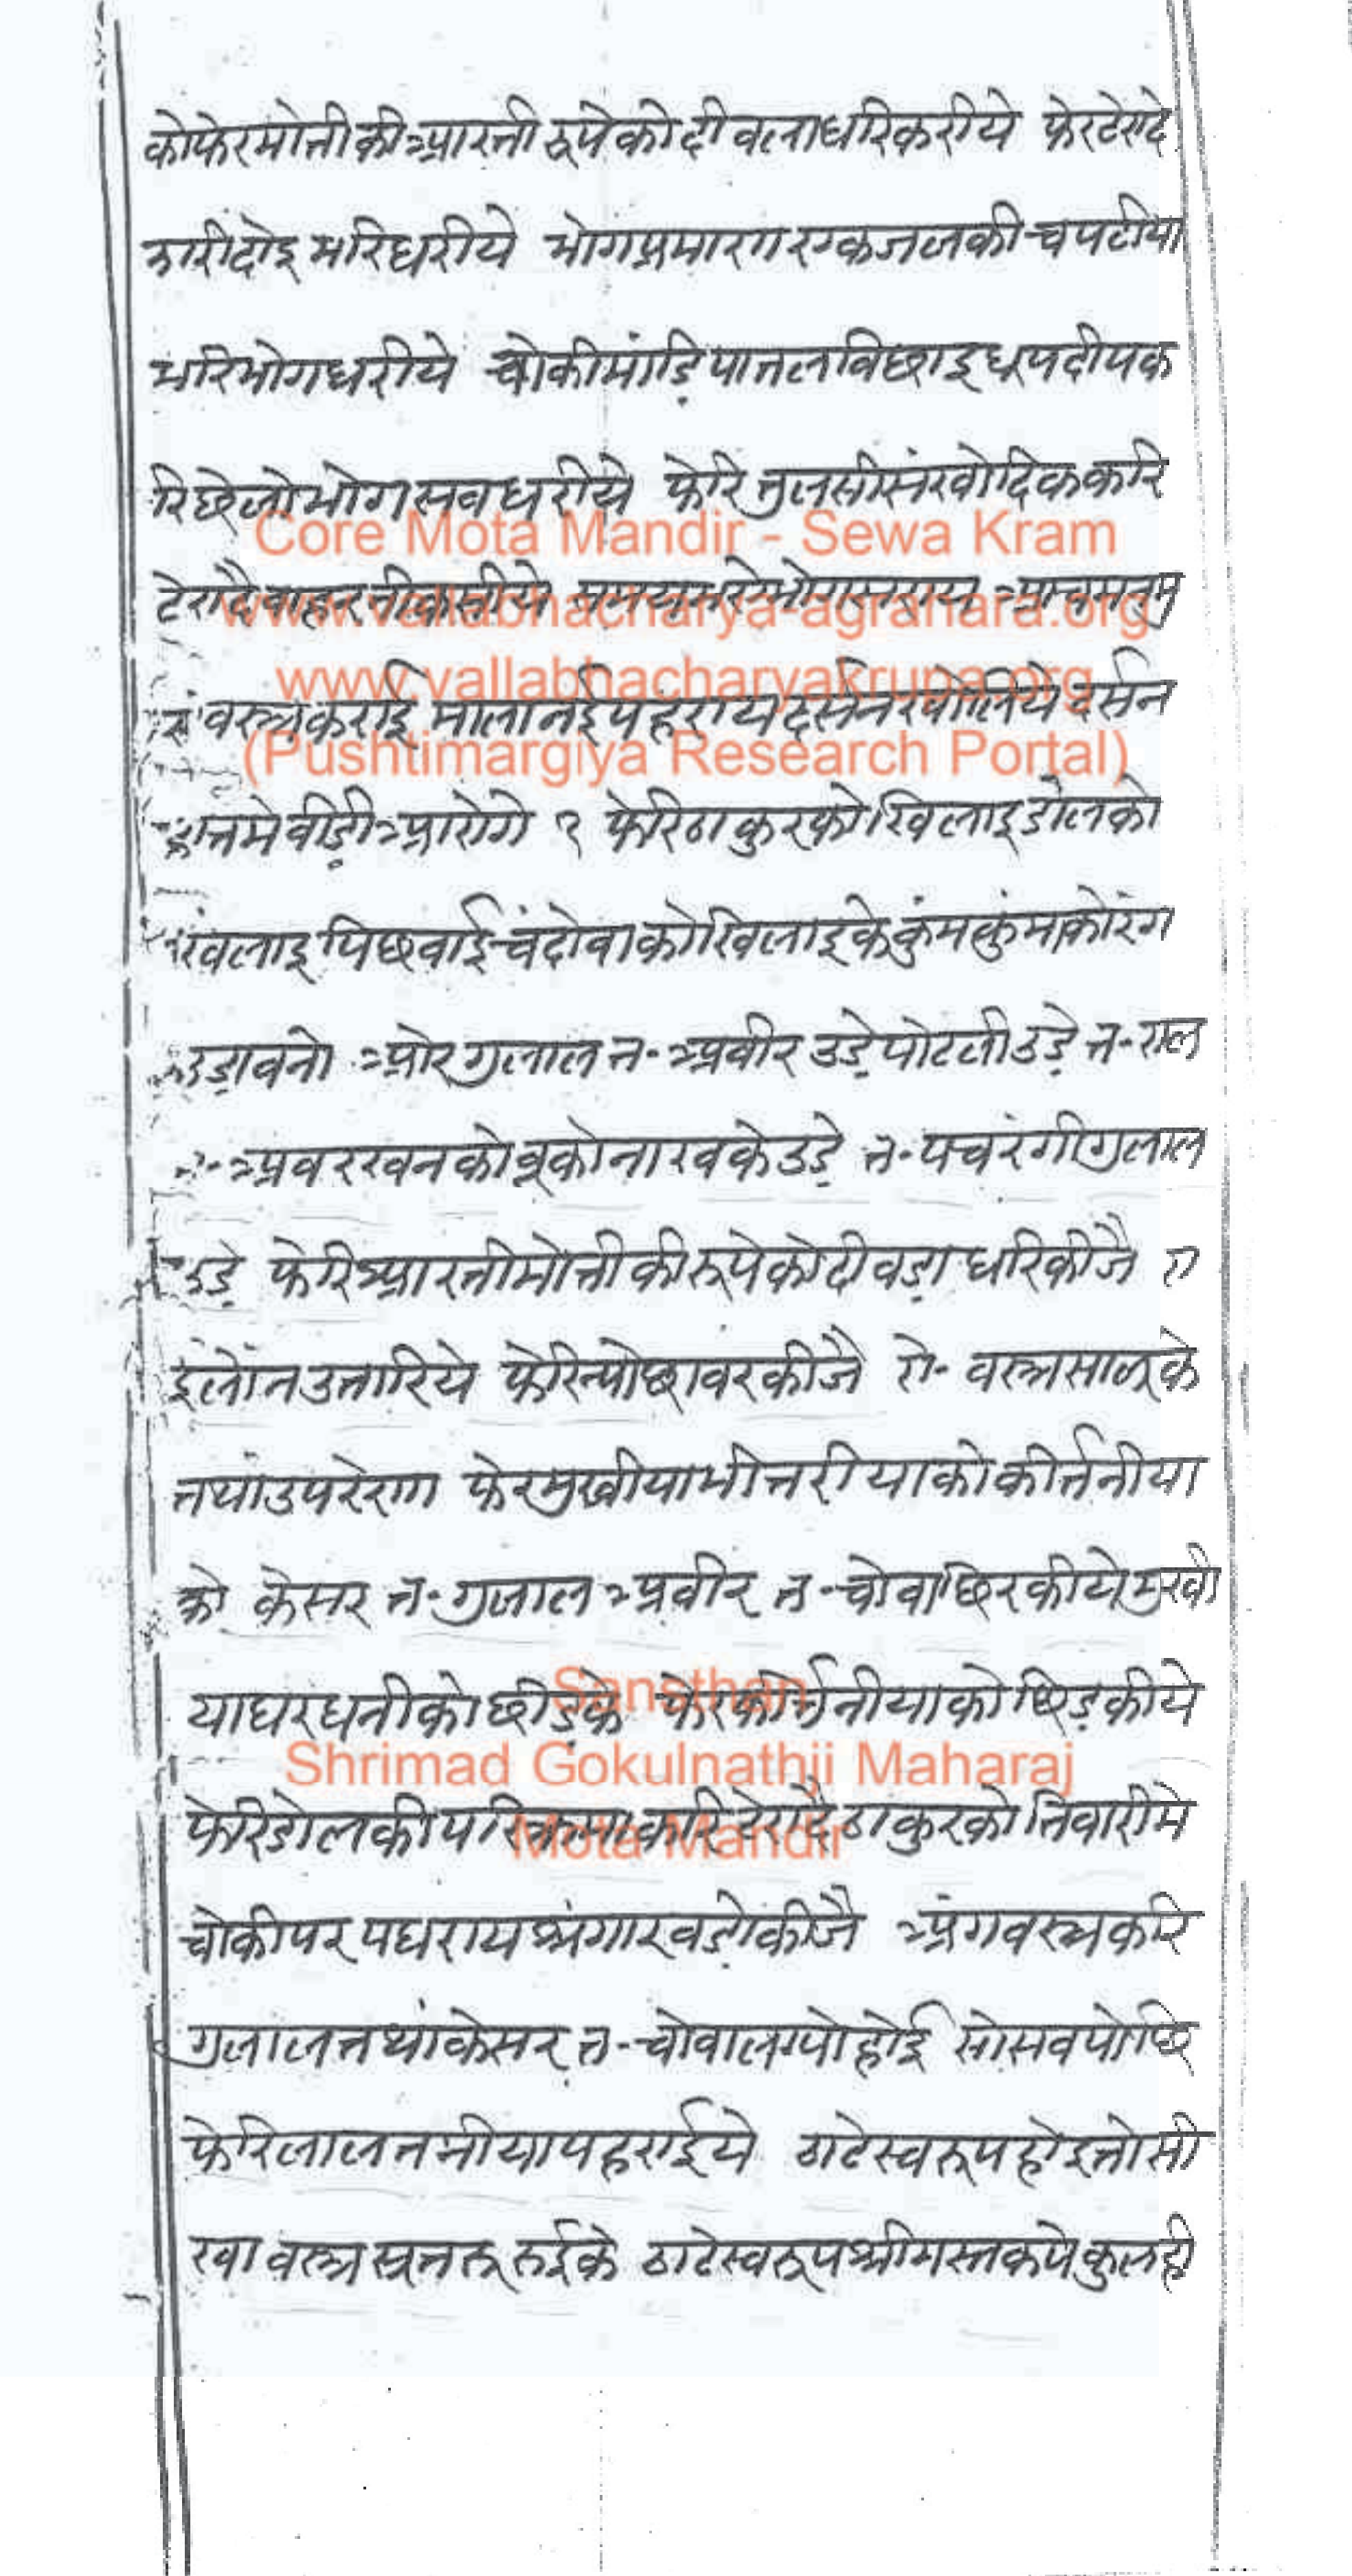 कोफेरमोतीकीआरतीरूपेकोदीवलाधरिकरीये फेरटेरादे
झारीदोइभरिधरीये भोगप्रमाणएकजलकीचपटीया
भरिभोगधरीये चोकीमांडि़पातलविछाइधूपदीपक
रिछेलोभोगसवधरीये फेरितुलसीसंखोदिककरि
टेरादैवाहरनीकसीये समयभयेभोगसराय आचमनमु
वस्त्रकराई मालानईपहरायदर्सनखोलिये दर्सन
मेवीडी़आरोगे १ फेरिठाकुरकोखिलाइडोलको
खिलाइपिछवाईचंदोवाकोखिलाइकेकुंमकुंमाकोरंग
उडा़वनो ओरगुलाल त॰ अवीरउडे़पोटलीउडे़ त॰ राल
त॰ अवरखनकोवूकोनाखकेउडे़ त॰ पचरंगीगुलाल
उडे़ फेरिआरतीमोतीकीरूपेकोदीवडा़धरिकीजै रा
इलोंनउतारिये फेरिन्योछावरकीजै रो॰ वस्त्रसाठके
तथांउपरेंणा फेरमुखीयाभीतरीयाकोकीर्त्तनीया
को केसर त॰ गुलाल अवीर त॰ चोवाछिरकीयेमुखी
याघरधनीकोछीड़के फेरकीर्त्तनीयाकोछिड़कीये
फेरिडोलकीपरिक्रमाकरिटेरादैठाकुरकोतिवारीमे
चोकीपरपधरायश्रृंगारवडो़कीजै अंगवस्त्रकरि
गुलालतथांकेसर त॰ चोवालग्योहोई सोसवपोंछि
फेरिलालतनीयापहराईये ठाढेस्वरूपहोइतोसी
खावस्त्रसूतरूरुईके ठाढेस्वरूपश्रीमस्तकपेकुलही
Core Mota Mandir - Sewa Kram
www.vallabhacharya-agrahara.org
www.vallabhacharyakrupa.org
(Pushtimargiya Research Portal)
Sansthan
Shrimad Gokulnathji Maharaj
Mota Mandir